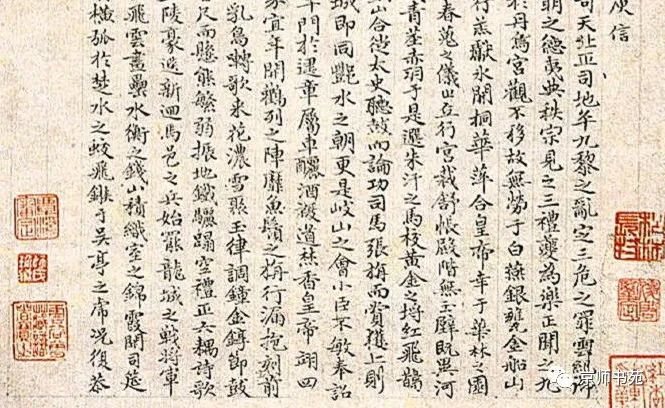 庾信
司天北正司地年九黎之亂定三危之罪雲紀御
明之德夷典秩宗見之三禮夔為樂正聞之九
於丹烏宮觀不移故無勞于白燕銀甕金船山
行羔獻氷開桐華萍合皇帝幸于華林之園
止立行宮裁舒帳殿階無玉璧既異河
青莖赤羽于是選朱汗之馬校黃金之埒紅飛鵲
山合徙太史聽鼓而論功司馬張旃而賞獲上則
城即同酆水之朝更是岐山之會小臣不敏奉詔
門於建章屬車釃酒複道焚香皇帝翊四
宜年開鶴列之陣靡魚鬚之旃行漏抱刻前
乳鳥囀歌來花濃雪聚玉律調鐘金錞節鼓
尺而懸熊繁弱振地鐵驪蹋空禮正六耦詩歌
陵豪逸新迴馬邑之兵始罷龍城之戰將軍
飛雲畫鼉水衡之錢山積織室之錦霞開司筵
橫弧於楚水之蛟飛鏃于吳亭之虎況復恭
京师书苑